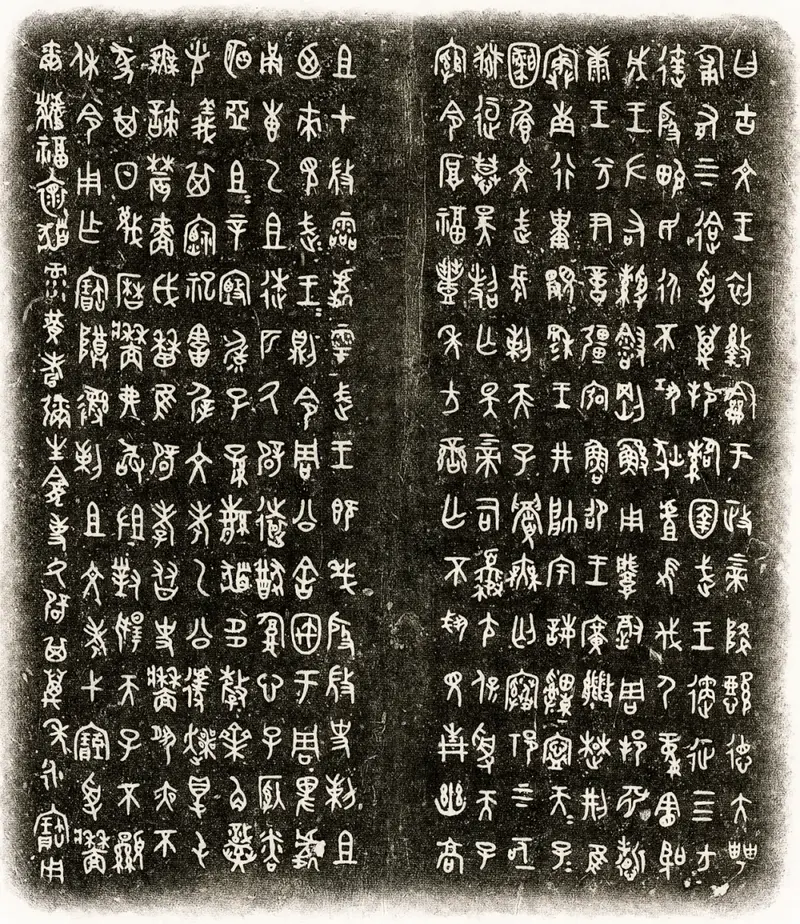 曰古文王初盭龢于政上帝降懿德大甹
匍有上下迨受萬邦圉武王遹征四方
達殷畯民永不巩狄虘伐尸童憲聖
成王左右綬剛鯀用肇徹周邦淵哲
康王兮尹億疆宏魯邵王廣楚荊隹
寏南行祗顯穆王井帥宇誨申寧天子天子
圝饡文武長剌天子眉無匄祁上下
亟獄宣慕昊照亡斁上帝司保受天子
綰令厚福豐年方蠻亡不見青幽高
且才微霝處雩武王既殷微史剌且
迺來見武王武王則令周公舍宇于周卑處
甬叀乙且逨匹氒辟遠猷腹心子納粦
明亞且且辛甄毓子孫繁多孷櫅角熾
光義其禋祀害屖文考乙公遽爽得屯
無諫農嗇戉歷隹辟孝友史墻夙夜不
彖其日蔑曆墻弗敢沮對揚天子不顯
休令用乍寶尊彝剌且文考弋受墻
爾福懷黃耇彌生龕事氒辟其萬年永寶用